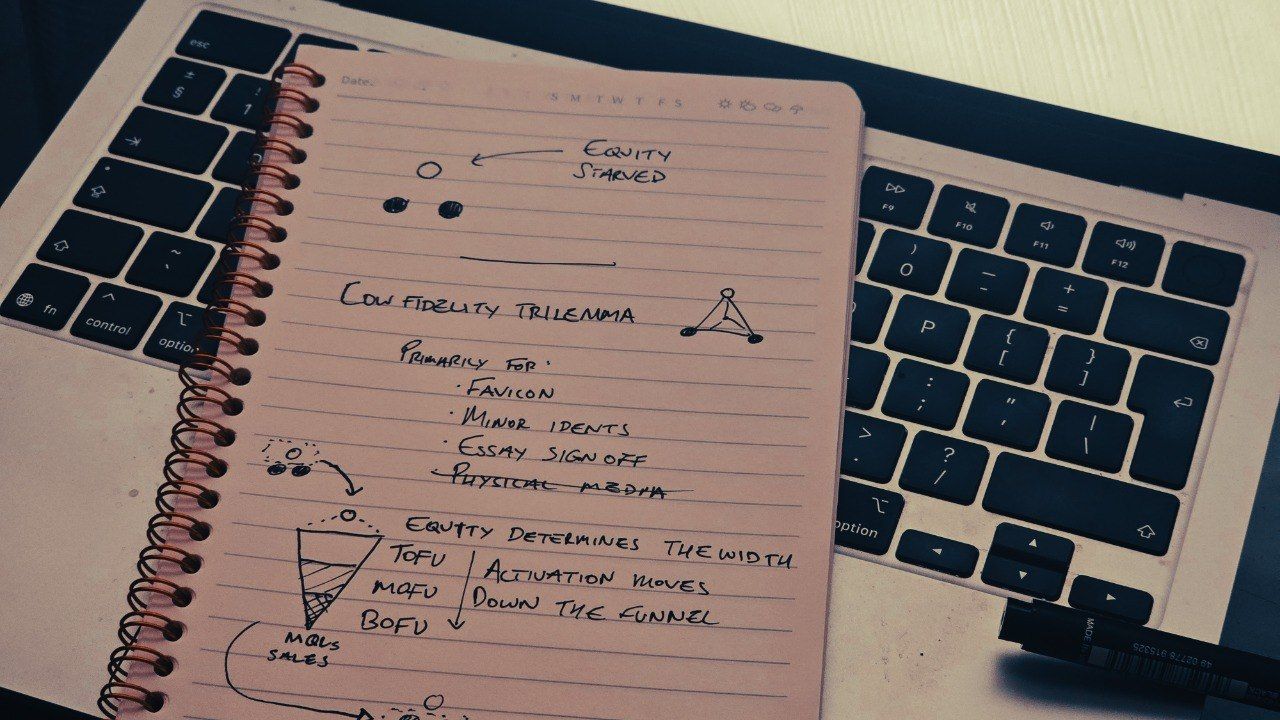 Date:
S M T W T F S
EQUITY
STARVED
LOW FIDELITY TRILEMMA
PRIMARILY FOR:
· FAVICON
· MINOR IDENTS
· ESSAY SIGN OFF
· PHYSICAL MEDIA
EQUITY DETERMINES THE WIDTH
TOFU
MOFU
BOFU
ACTIVATION MOVES
DOWN THE FUNNEL
MQLs
SALES
esc
±
§
!
1
~
`
fn
^
control
⌥
option
F9
F10
F11
F12
)
0
_
-
+
=
P
{
[
}
]
:
;
"
'
|
\
>
.
?
/
⌥
option
MADE
49 02778 915325